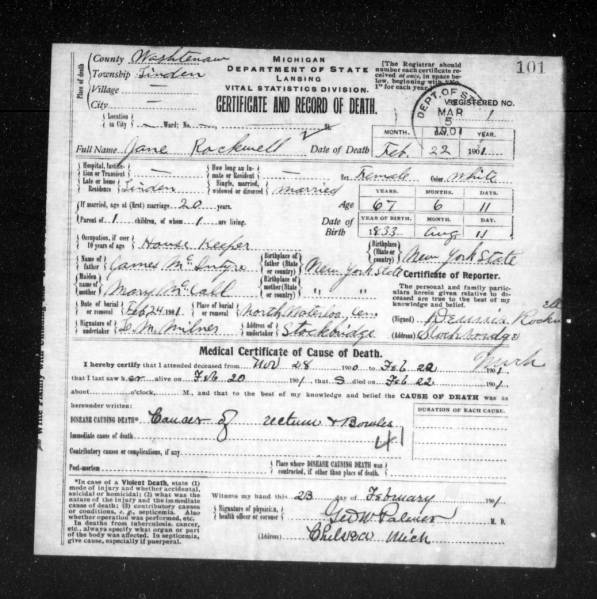 Place of death
County Washtenaw
Township Linden
Village —
City —
MICHIGAN
DEPARTMENT OF STATE
LANSING
VITAL STATISTICS DIVISION.
CERTIFICATE AND RECORD OF DEATH.
[The Registrar should
number each certificate received
at once, in space below,
1" for each year.]
101
REGISTERED NO. 1
DEPT. OF ST
MAR
5
1901
{Location in City — Ward; No.
Full Name Jane Rockwell Date of Death
MONTH. YEAR.
Feb. 22 1901
Hospital, Institution or Transient —
Late or home Residence Linden
How long an Inmate or Resident —
Single, married, widowed or divorced married
Sex Female Color White
If married, age at (first) marriage 20 years.
Parent of 1 children, of whom 1 are living.
Age
YEARS. MONTHS. DAYS.
67 6 11
Date of Birth
YEAR OF BIRTH. MONTH. DAY.
1833 Aug 11
Occupation, if over 10 years of age House Keeper
Birthplace (State or country) New York State
Name of father James Mc Intyre
Birthplace of father (State or country) New York State
Maiden name of mother Mary McCall
Birthplace of mother (State or country) " " "
Certificate of Reporter.
The personal and family particulars
herein given relative to deceased
are true to the best of my
knowledge and belief.
Date of burial or removal Feb 24 1901
Place of burial or removal North Waterloo, Cem
(Signed) Dennis Rockwell
Signature of undertaker M. Milner
Address of undertaker Stockbridge
(Address) Stockbridge
Mich
Medical Certificate of Cause of Death.
I hereby certify that I attended deceased from Nov 28 1900 to Feb 22 1901
that I last saw her alive on Feb 20 1901, that S died on Feb 22 1901
about o'clock, M., and that to the best of my knowledge and belief the CAUSE OF DEATH was as
hereunder written:
DURATION OF EACH CAUSE.
DISEASE CAUSING DEATH* Cancer of rectum & Bowles
Immediate cause of death 41
Contributory causes or complications, if any
Post-mortem
Place where DISEASE CAUSING DEATH was contracted, if other than place of death.
*In case of a Violent Death, state (1)
mode of injury and whether accidental,
suicidal or homicidal; (2) what was the
nature of the injury and the immediate
cause of death; (3) contributory causes
or conditions, e. g., septicemia. Also
whether operation was performed, etc.
In deaths from tuberculosis, cancer,
etc., always specify what organ or part
of the body was affected. In septicemia,
give cause, especially if puerperal.
Witness my hand this 23 day of February 1901
Signature of physician, health officer or coroner Geo W Palmer M. D.
(Address) Chelsea Mich